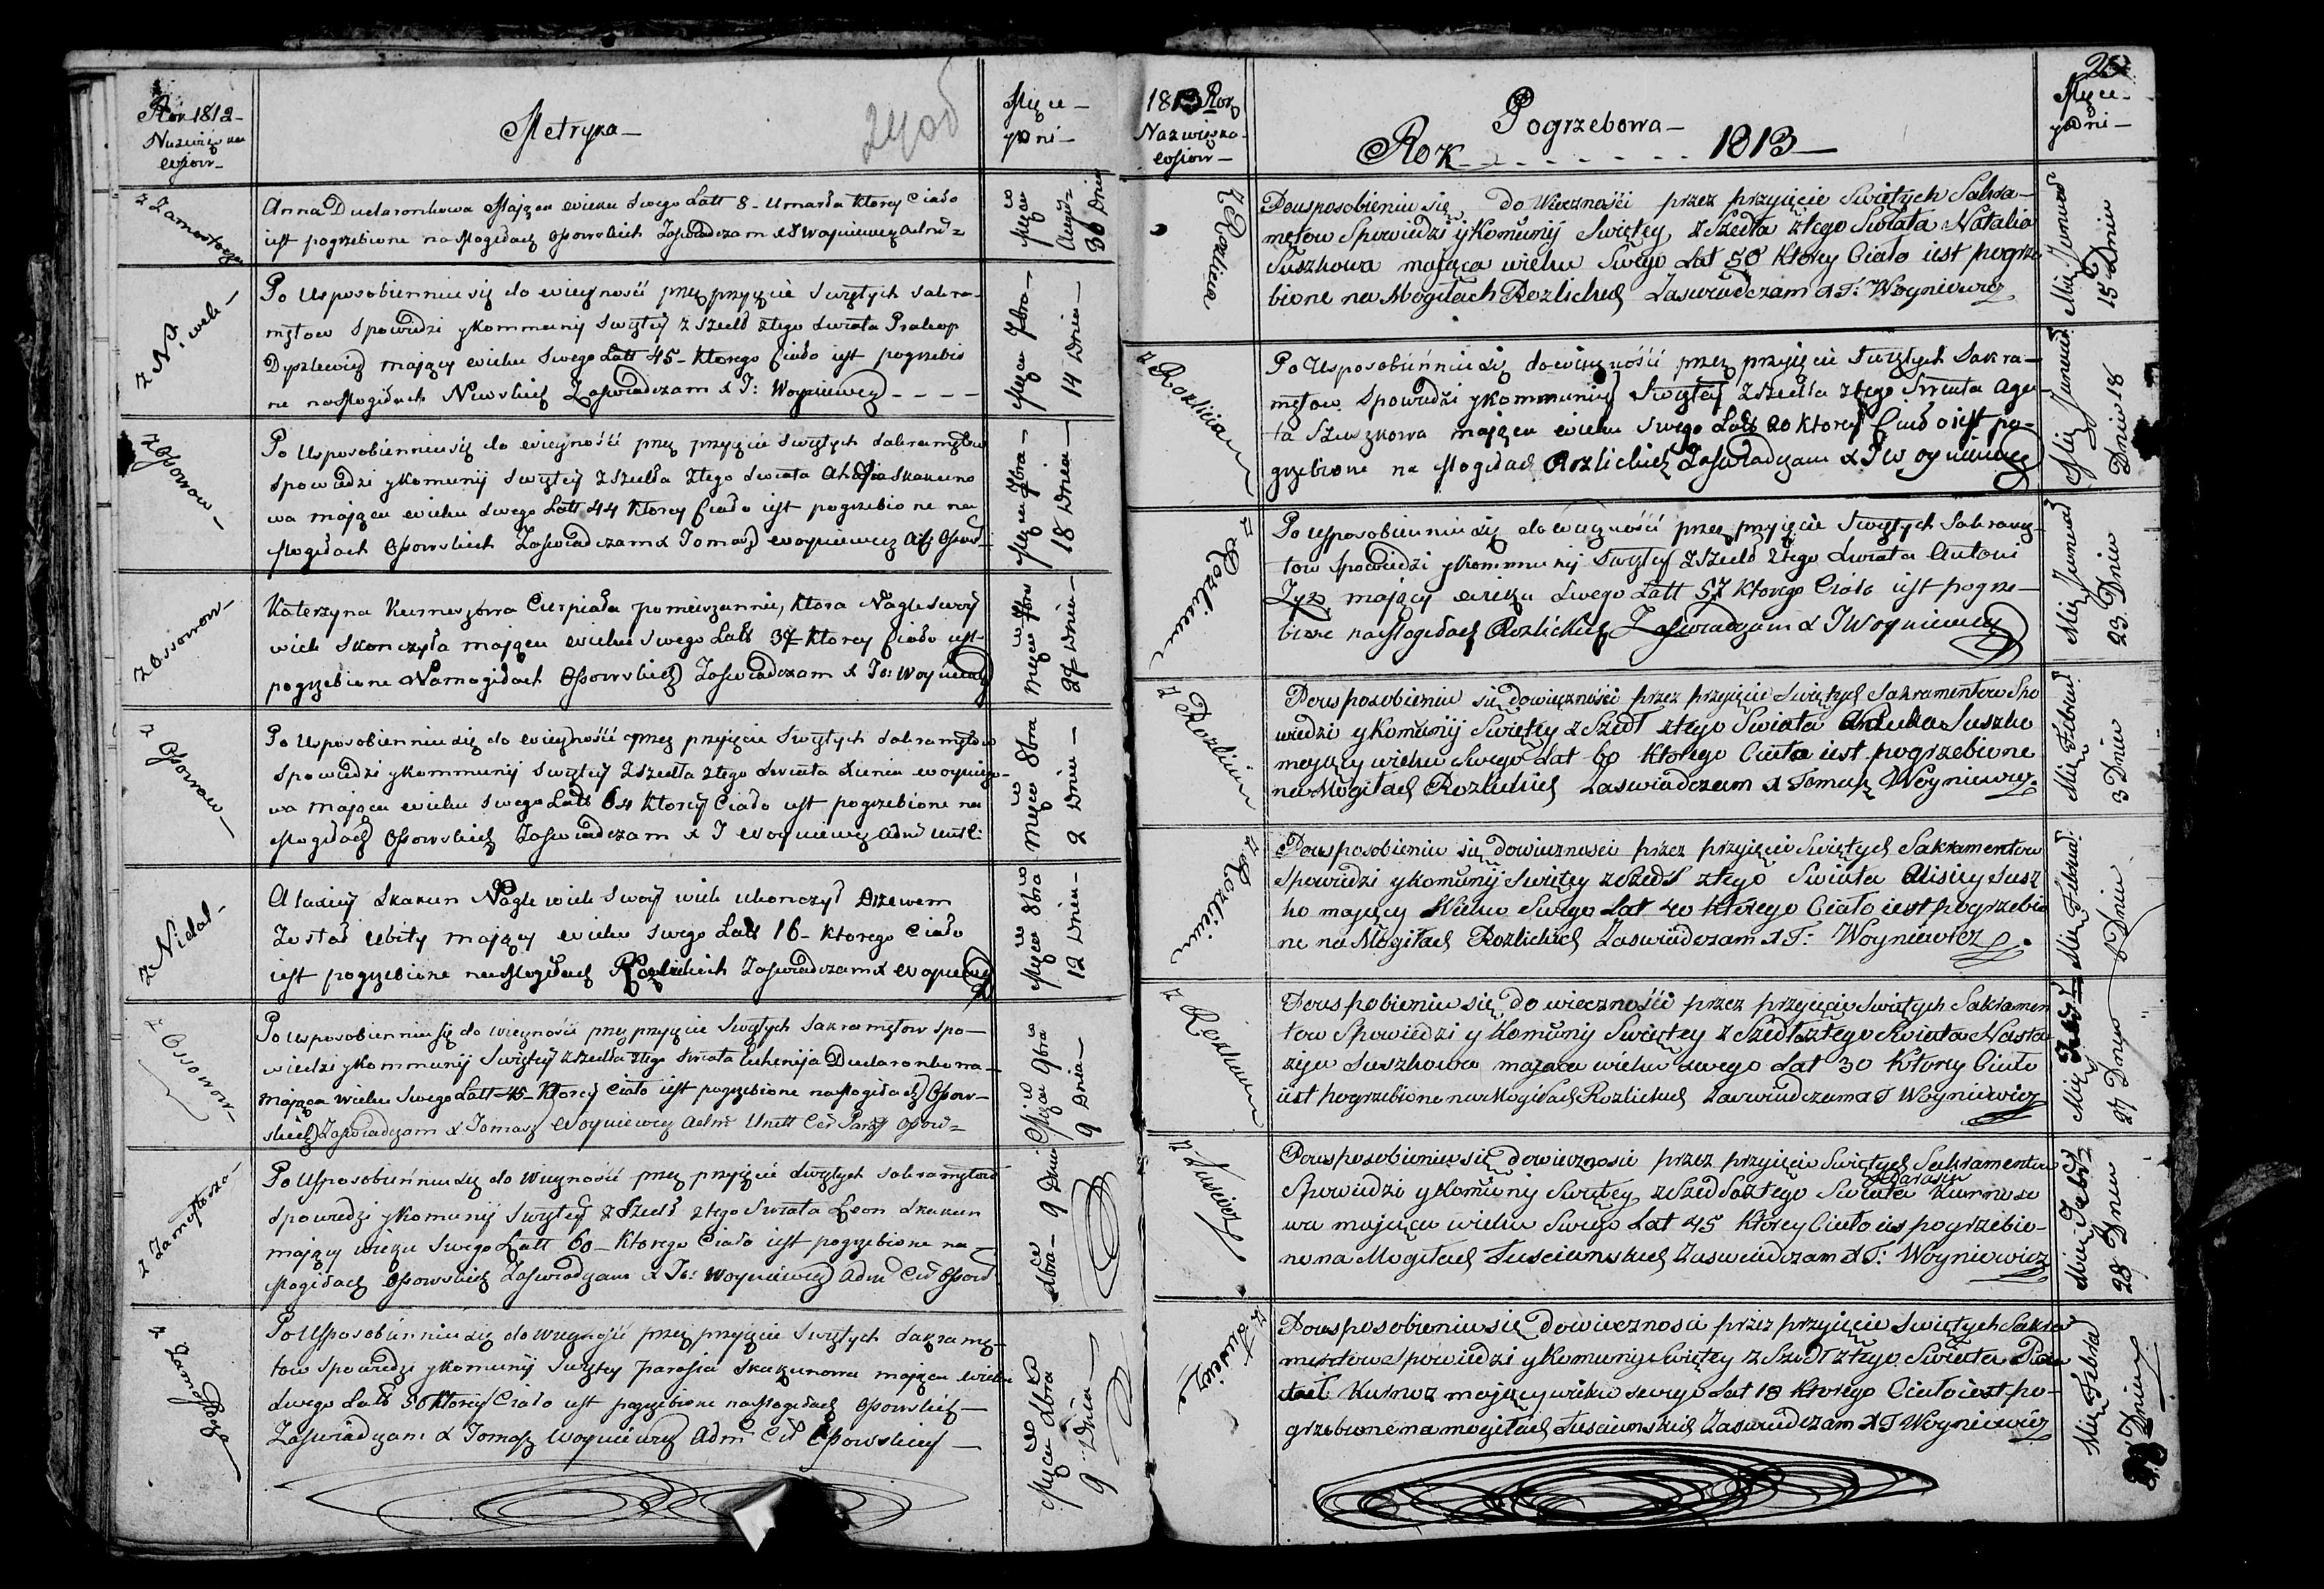 Rok 1812
Nazwiska
wsiow
Metryka
24 об
Mięce
y dni
z Zamosza
Anna Dudaronkowa Mająca wieku swego Latt 8 - Umarła ktorey Ciało
iest pogrzebione na Mogiłach Ossowskich Zaświadczam X J Woyniewicz Adm
Mięca
30 Dnia
z Niwek
Po Usposobienniu się do wiecznosci przez przyięcie swiętych sakra-
mętow spowiedzi y kommunij swiętey z szedł z tego swiata Prakop
Dyszlewicz mający wieku swego Latt 45 - ktorego Ciało iest pogrzebio
ne na Mogiłach Niwskich Zaświadczam X T: Woyniewicz - - - -
Mięca 7bra
14 Dnia
z Ossowow
Po Usposobienniu się do wiecznosci przez przyięcie swiętych sakramętow
spowiedzi y komunij swiętey z szedła z tego swiata Skakuno
wa mająca wieku swego Latt 44 ktorey Ciało iest pogrzebione na
Mogiłach Ossowskich Zaświadczam X Tomasz Woyniewicz
Mięca 7bra
18 Dnia
z Ossowow
Katerzyna Kurnuszowa Cierpiała pomieszannie, ktora Nagle swoy
wiek skonczyła mająca wieku swego Latt ktorey Ciało iest
pogrzebione Na mogiłach Ossowskich Zaświadczam X To: Woyniewicz
Mięca 7bra
Dnia
z Ossowow
Po Usposobienniu się do wiecznosci przez przyięcie swiętych sakramętow
spowiedzi y kommunij swiętey z szedła z tego swiata
wa mająca wieku swego Latt 64 ktorey Ciało iest pogrzebione na
Mogiłach Ossowskich Zaświadczam X T Woyniewicz Adm
Mięca 8bra
2 Dnia
z Nidal
Alaxiey Skakun Nagle wiek swoy wiek ukonczył Drzewem
Został ubity mający wieku swego Latt 16 - ktorego Ciało
iest pogrzebione na Mogiłach Rozlickich Zaświadczam X Woyniewicz
Mięca 8bra
12 Dnia
z Ossowow
Po Usposobienniu się do wiecznosci przez przyięcie swiętych sakramętow spo-
wiedzi y kommunij swiętey z szedła z tego swiata Euhenija Dudaronkowa
mająca wieku swego Latt 45 - ktorey Ciało iest pogrzebione na Mogiłach Ossow-
skich Zaświadczam X Tomasz Woyniewicz Adm
Mięca 9bra
9 Dnia
z Zamosza
Po Usposobienniu się do wiecznosci przez przyięcie swiętych sakramętow
spowiedzi y komunij swiętey z szedł z tego swiata Leon Skakun
mający wieku swego Latt 60 - ktorego Ciało iest pogrzebione na
Mogiłach Ossowskich Zaświadczam X To: Woyniewicz Adm
9 Dnia
z Zamosza
Po Usposobienniu się do wiecznosci przez przyięcie swiętych sakramę-
tow spowiedzi y komunij swiętey Parasia Skakunowa mająca wieku
swego Latt 50 ktorey Ciało iest pogrzebione na Mogiłach Ossowskich
Zaświadczam X Tomasz Woyniewicz Adm
Mięca
9 Dnia
1813 Rok
Nazwiska
wsiow
Pogrzebowa
Rok - - - - - - - 1813
25
Mięce
y dni
z Rozlica
Po usposobieniu się do Wiecznośći przez przyięcie Swiętych Sakra-
mętow Spowiedzi y Komunij Swiętey z Szedła z tego Swiata Natalia
Suszkowa mająca wieku Swego Lat 50 ktorey Ciało iest pogrze
bione na Mogiłach Rozlickich Zaswiadczam X T: Woyniewicz
15 Dnia
z Rozlicau
Po Usposobienniu się do wiecznośći przez przyięcie swiętych sakra-
mętow spowiedzi y kommunij Swiętey z szedła z tego Swiata Aga-
ta Szuszkowa mająca wieku swego Latt 20 ktorey Ciało iest po-
grzebione na Mogiłach Rozlickich Zaświadczam X T Woyniewicz
Dnia 18
z Rozlicau
Po Usposobienniu się do wiecznośći przez przyięcie Swiętych Sakramę-
tow spowiedzi y kommunij Swiętey z szedł z tego swiata Antoni
Zyz mający wieku swego Latt 57 ktorego Ciało iest pogrze-
bione na Mogiłach Rozlickich Zaświadczam X T Woyniewicz
23 Dnia
z Rozlicau
Po usposobieniu się do wieczności przez przyięcie Swiętych Sakramentow Spo
wiedzi y Komunij Swiętey z Szedł z tego Swiata Suszko
maiący wieku Swego Lat 60 ktorego Ciało iest pogrzebione
na Mogiłach Rozlickich Zaswiadczam X Tomasz Woyniewicz
3 Dnia
z Rozlicau
Po usposobieniu się do wieczności przez przyięcie Swiętych Sakramentow
Spowiedzi y Komunij Swiętey z Szedł z tego Swiata Alisiey Susz
ko mający Wieku Swego Lat 40 ktorego Ciało iest pogrzebio
ne na Mogiłach Rozlickich Zaswiadczam X T: Woyniewicz
Dnia
z Rozlicau
Po uspobieniu się do wieczności przez przyięcie Swiętych Sakramen
tow Spowiedzi y Komunij Swiętey z Szedła z tego Swiata Nasta
zija Suszkowa maiąca wieku swego Lat 30 ktorey Ciało
iest pogrzebione na Mogiłach Rozlickich Zaswiadczam X T Woyniewicz
27 Dnia
Po usposobieniu się do wieczności przez przyięcie Swiętych Sakramentow
Parasia
Spowiedzi y Komunij Swiętey z Szedła z tego Swiata Kurnuso
wa maiąca wieku Swego Lat 45 ktorey Ciało ies pogrzebio-
ne na Mogiłach Łusciewskich Zaswiadczam X T: Woyniewicz
28 Dnia
Po usposobieniu się do wieczności przez przyięcie Swiętych Sakra
mentow Spowiedzi y Komunij Swiętey z Szedł z tego Swiata
Kurnoz maiący wieku swego Lat 18 ktorego Ciało iest po-
grzebione na mogiłach Łusciewskich Zaswiadczam X T Woyniewicz
Dnia